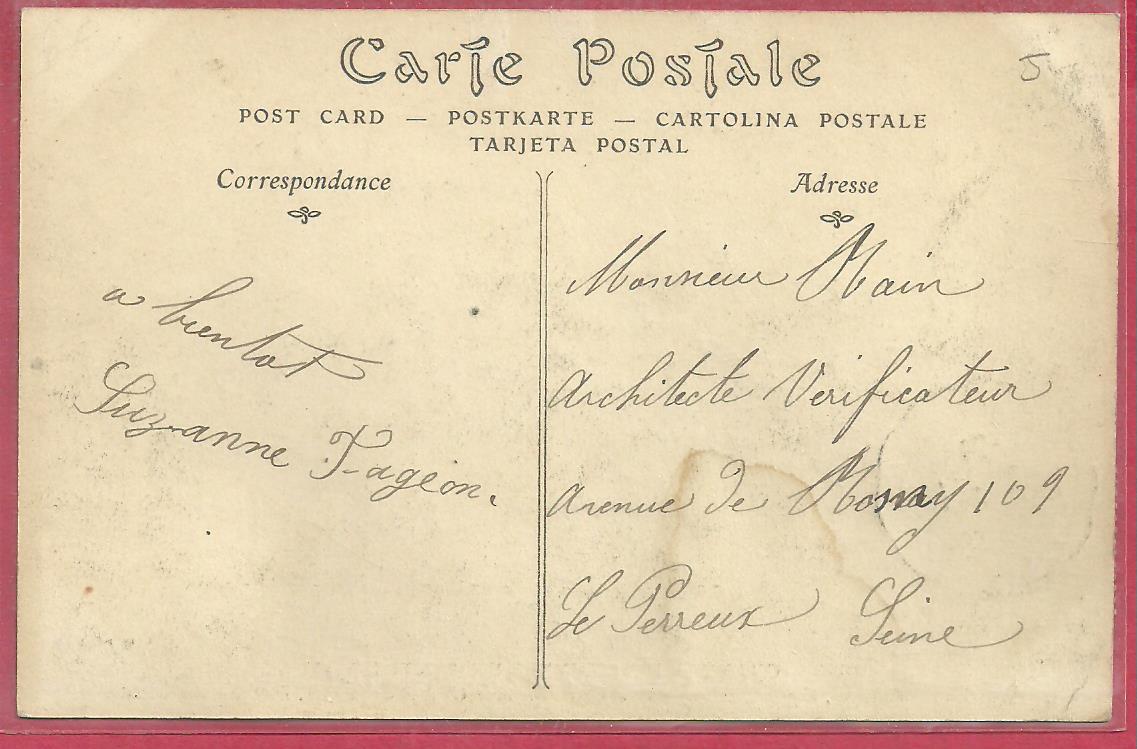 Carte Postale
5
POST CARD — POSTKARTE — CARTOLINA POSTALE
TARJETA POSTAL
Correspondance
a bientot
Suzanne Fageon.
Adresse
Monsieur Nain
Architecte Verificateur
Avenue de Rosny 109
Le Perreux Seine